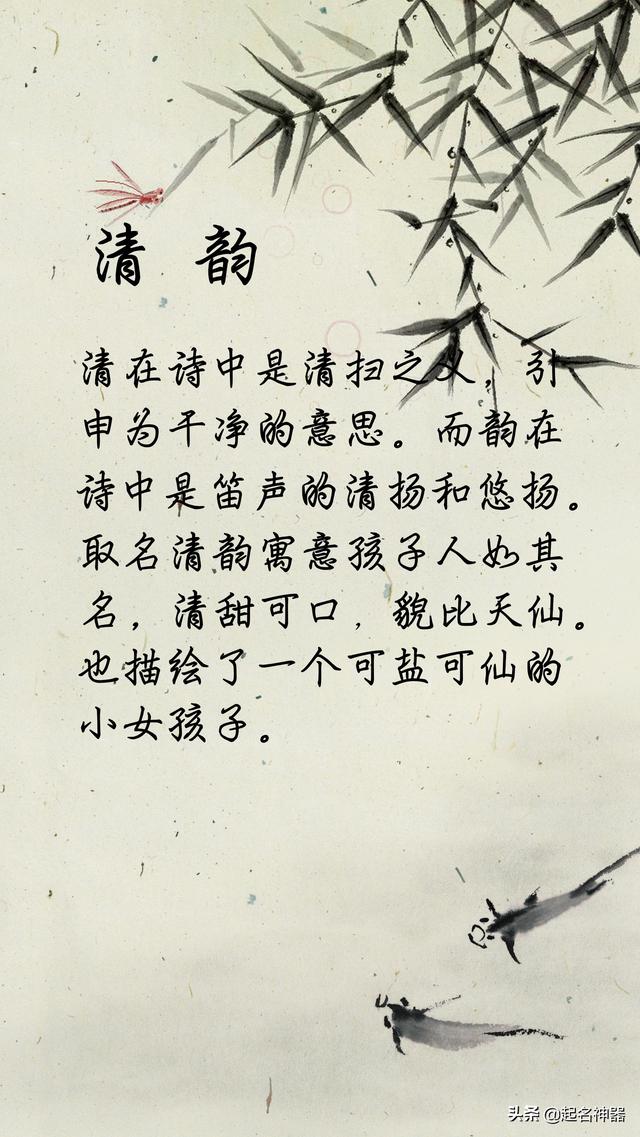 清 韵
清在诗中是清扫之义，引
申为干净的意思。而韵在
诗中是笛声的清扬和悠扬。
取名清韵寓意孩子人如其
名，清甜可口，貌比天仙。
也描绘了一个可盐可仙的
小女孩子。
头条 @起名神器